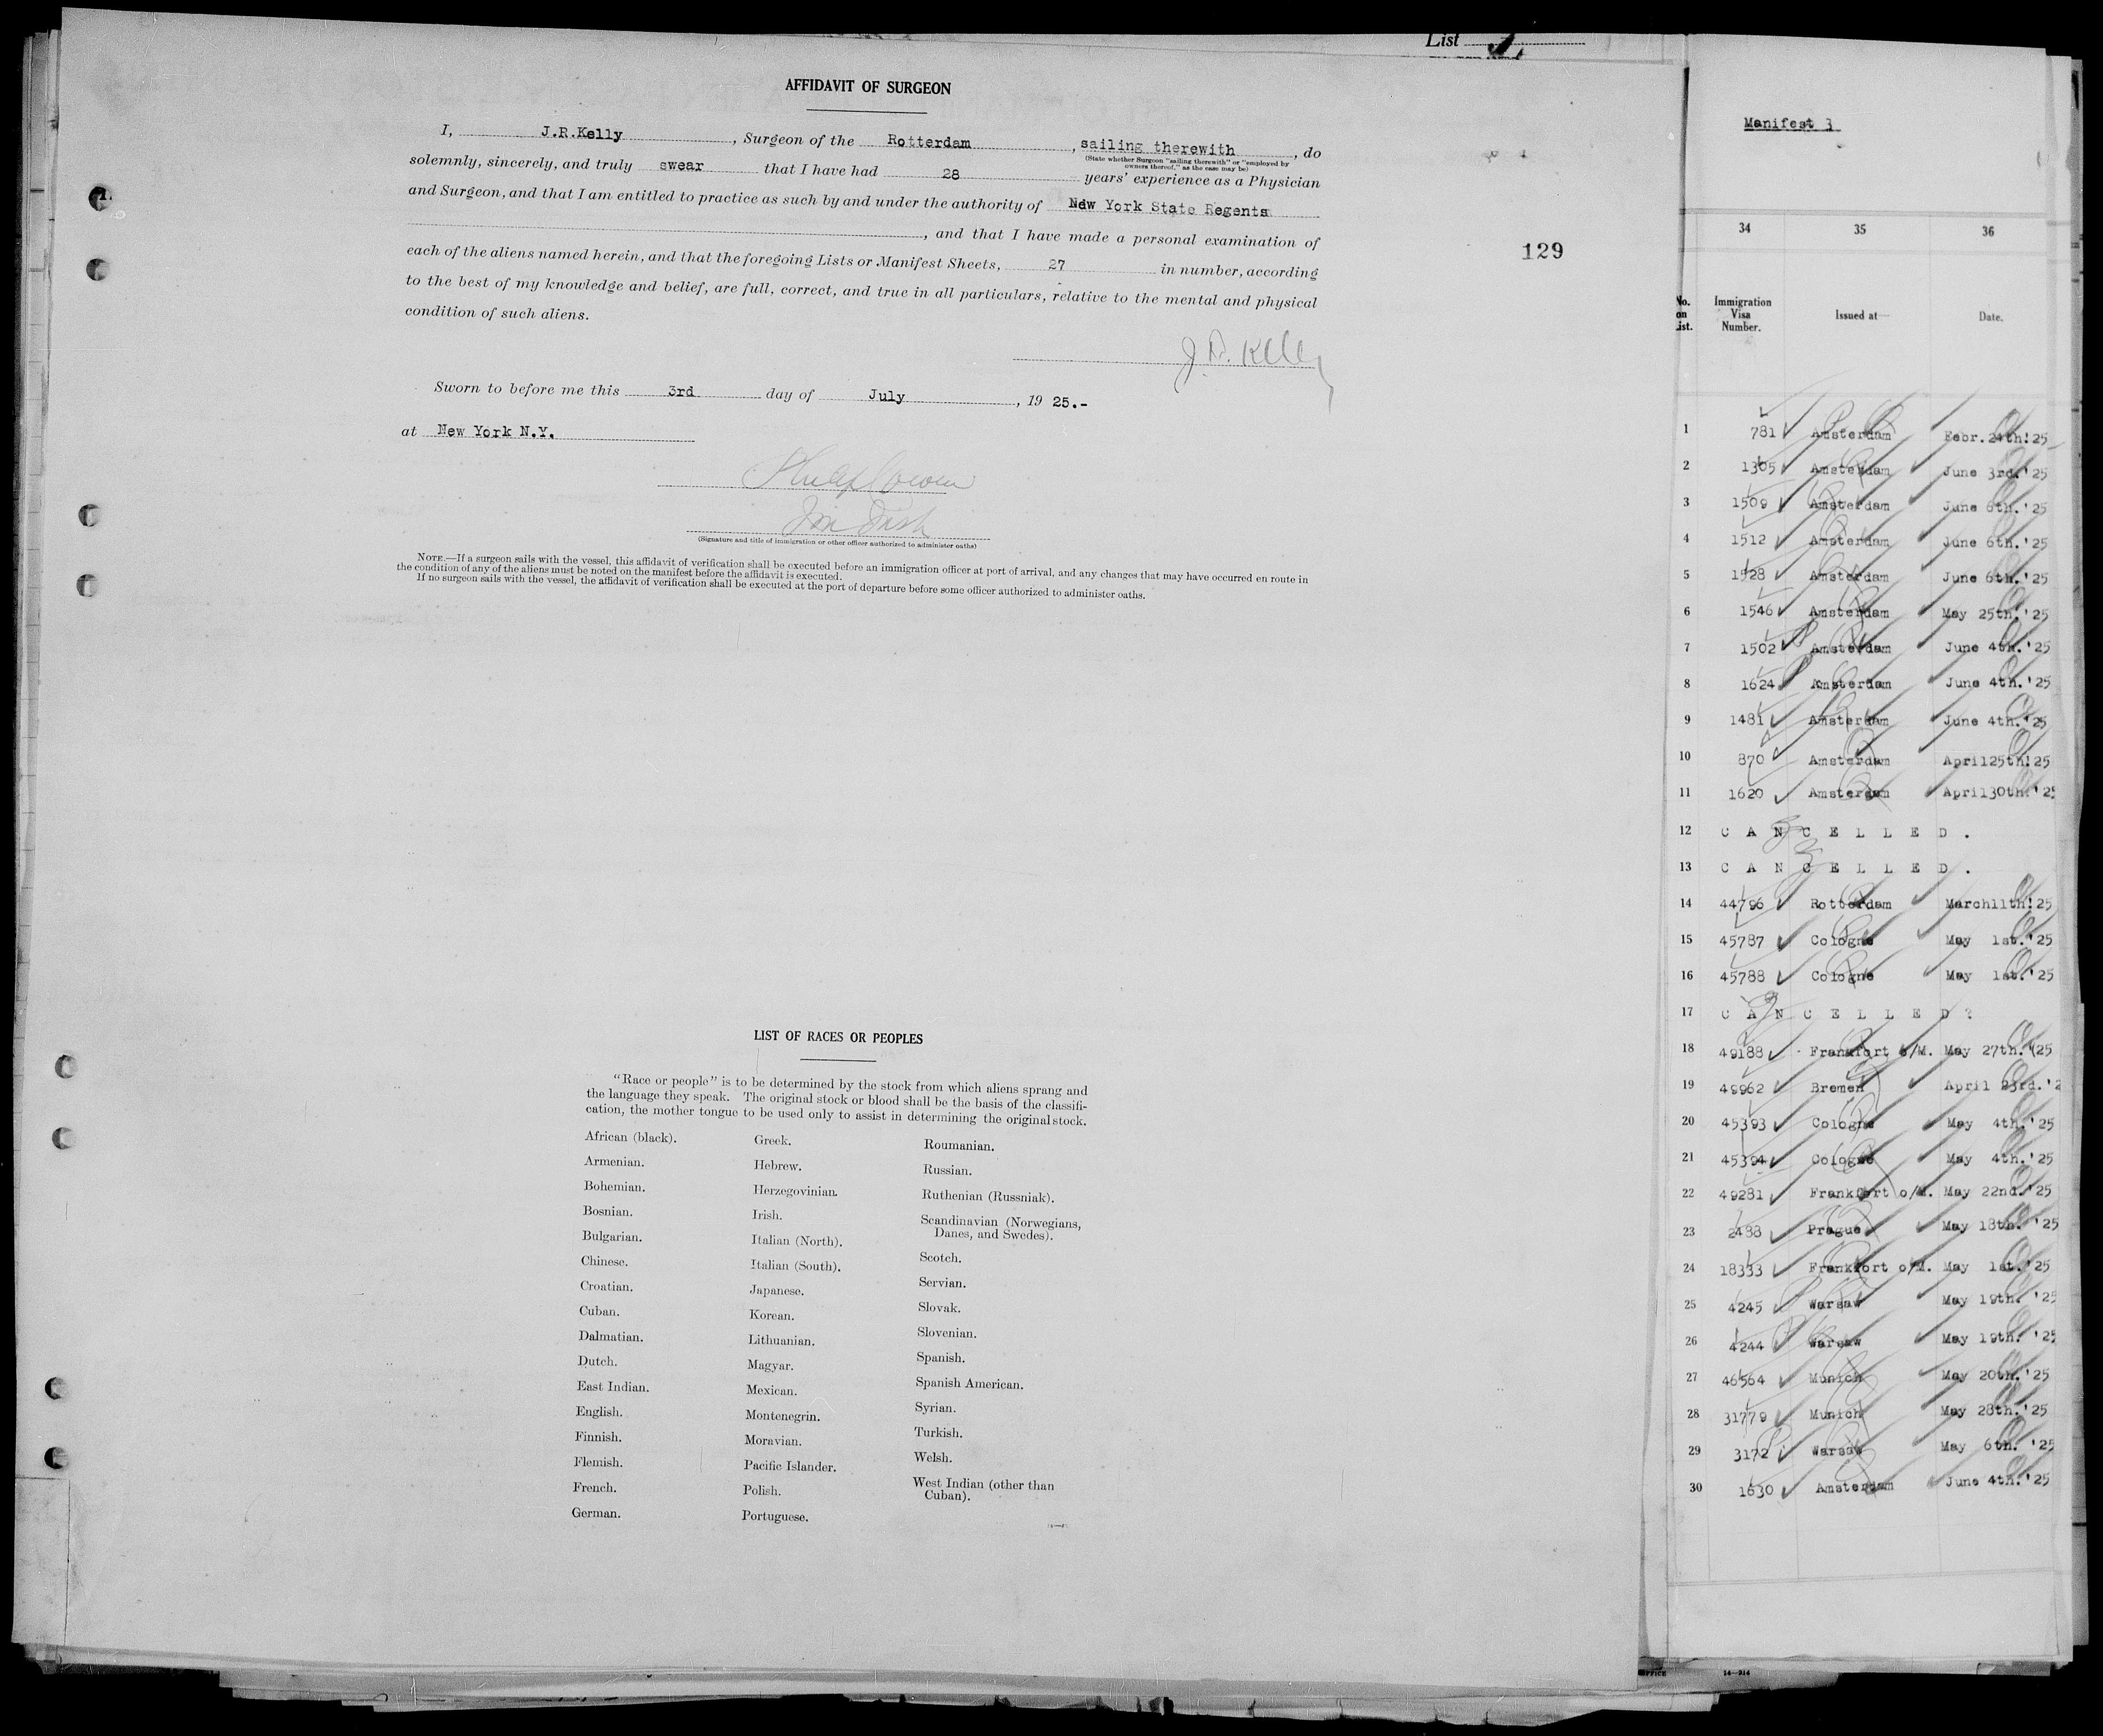 List
AFFIDAVIT OF SURGEON
I, J.R.Kelly, Surgeon of the Rotterdam, sailing therewith, do
(State whether Surgeon "sailing therewith" or "employed by
owners thereof," as the case may be)
solemnly, sincerely, and truly swear that I have had 28 years' experience as a Physician
and Surgeon, and that I am entitled to practice as such by and under the authority of New York State Regents
, and that I have made a personal examination of
each of the aliens named herein, and that the foregoing Lists or Manifest Sheets, 27 in number, according
to the best of my knowledge and belief, are full, correct, and true in all particulars, relative to the mental and physical
condition of such aliens.
J. R. Kelly
Sworn to before me this 3rd day of July, 19 25.-
at New York N.Y.
(Signature and title of immigration or other officer authorized to administer oaths)
NOTE.—If a surgeon sails with the vessel, this affidavit of verification shall be executed before an immigration officer at port of arrival, and any changes that may have occurred en route in
the condition of any of the aliens must be noted on the manifest before the affidavit is executed.
If no surgeon sails with the vessel, the affidavit of verification shall be executed at the port of departure before some officer authorized to administer oaths.
129
LIST OF RACES OR PEOPLES
"Race or people" is to be determined by the stock from which aliens sprang and
the language they speak. The original stock or blood shall be the basis of the classifi-
cation, the mother tongue to be used only to assist in determining the original stock.
African (black).
Armenian.
Bohemian.
Bosnian.
Bulgarian.
Chinese.
Croatian.
Cuban.
Dalmatian.
Dutch.
East Indian.
English.
Finnish.
Flemish.
French.
German.
Greek.
Hebrew.
Herzegovinian.
Irish.
Italian (North).
Italian (South).
Japanese.
Korean.
Lithuanian.
Magyar.
Mexican.
Montenegrin.
Moravian.
Pacific Islander.
Polish.
Portuguese.
Roumanian.
Russian.
Ruthenian (Russniak).
Scandinavian (Norwegians,
Danes, and Swedes).
Scotch.
Servian.
Slovak.
Slovenian.
Spanish.
Spanish American.
Syrian.
Turkish.
Welsh.
West Indian (other than
Cuban).
Manifest 3
34 35 36
No. on List. Immigration Visa Number. Issued at— Date.
1 781 Amsterdam Febr.24th!25
2 1305 Amsterdam June 3rd.'25
3 1509 Amsterdam June 6th.'25
4 1512 Amsterdam June 6th.'25
5 1528 Amsterdam June 6th.'25
6 1546 Amsterdam May 25th.'25
7 1502 Amsterdam June 4th.'25
8 1624 Amsterdam June 4th.'25
9 1481 Amsterdam June 4th.'25
10 870 Amsterdam April25th!25
11 1620 Amsterdam April30th.'25
12 C A N C E L L E D .
13 C A N C E L L E D .
14 44796 Rotterdam March11th!25
15 45787 Cologne May 1st.'25
16 45788 Cologne May 1st.'25
17 C A N C E L L E D ?
18 49188 Frankfort o/M. May 27th.'25
19 49962 Bremen April 23rd.'2
20 45393 Cologne May 4th.'25
21 45394 Cologne May 4th.'25
22 49281 Frankfort o/M. May 22nd.'25
23 2488 Prague May 18th. '25
24 18333 Frankfort o/M. May 1st.'25
25 4245 Warsaw May 19th. '25
26 4244 Warsaw May 19th. '25
27 46564 Munich May 20th.'25
28 31779 Munich May 28th.'25
29 3172 Warsaw May 6th. '25
30 1630 Amsterdam June 4th.'25
14—914